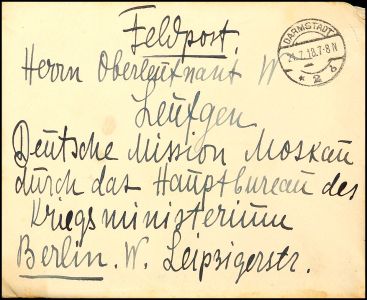 Feldpost.
DARMSTADT
24.7.18.7-8N
* 2 d
Herrn Oberleutnant W
Leutgen
Deutsche Mission Moskau
durch das Hauptbureau des
Kriegsministerium
Berlin. W. Leipzigerstr.